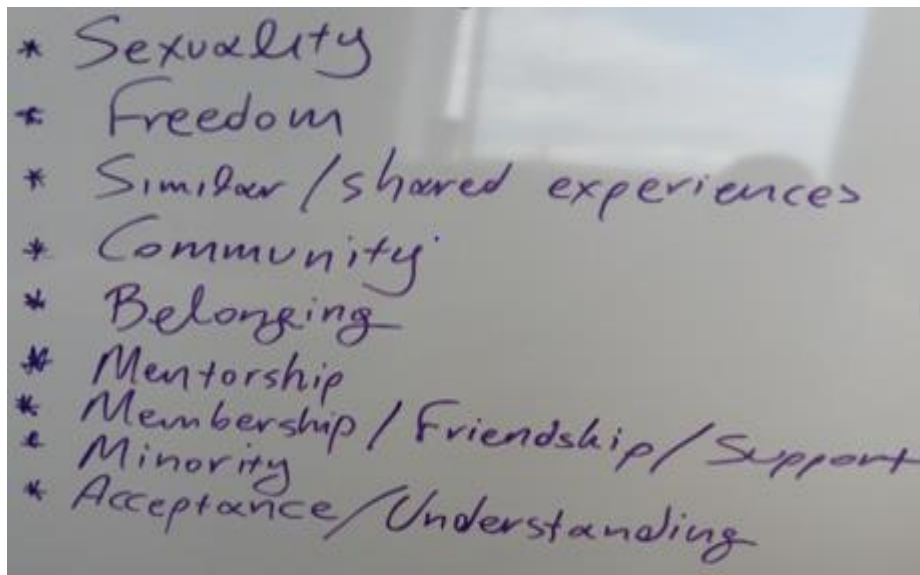 * Sexuality
* Freedom
* Similar/shared experiences
* Community
* Belonging
* Mentorship
* Membership/Friendship/Support
* Minority
* Acceptance/Understanding